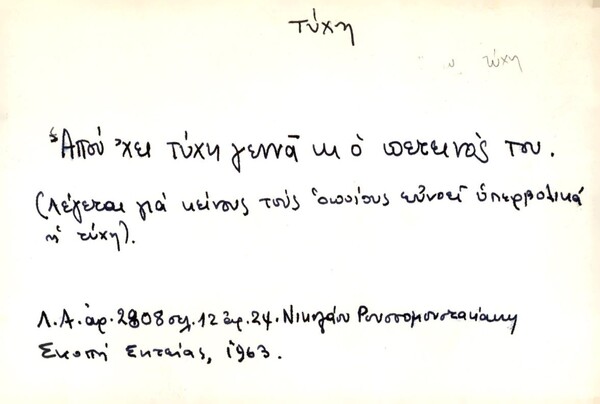 τύχη
τύχη
Ἁπού 'χει τύχη γεννᾶ κι ὁ πετεινός του.
(Λέγεται γιά κείνους τούς ὁποίους εὐνοεῖ ὑπερβολικά
ἡ τύχη).
Λ.Α. ἀρ. 2808 σελ. 12 ἀρ. 24. Νικολάου Ρουσσομουστακάκη
Σκοπή Σητείας, 1963.